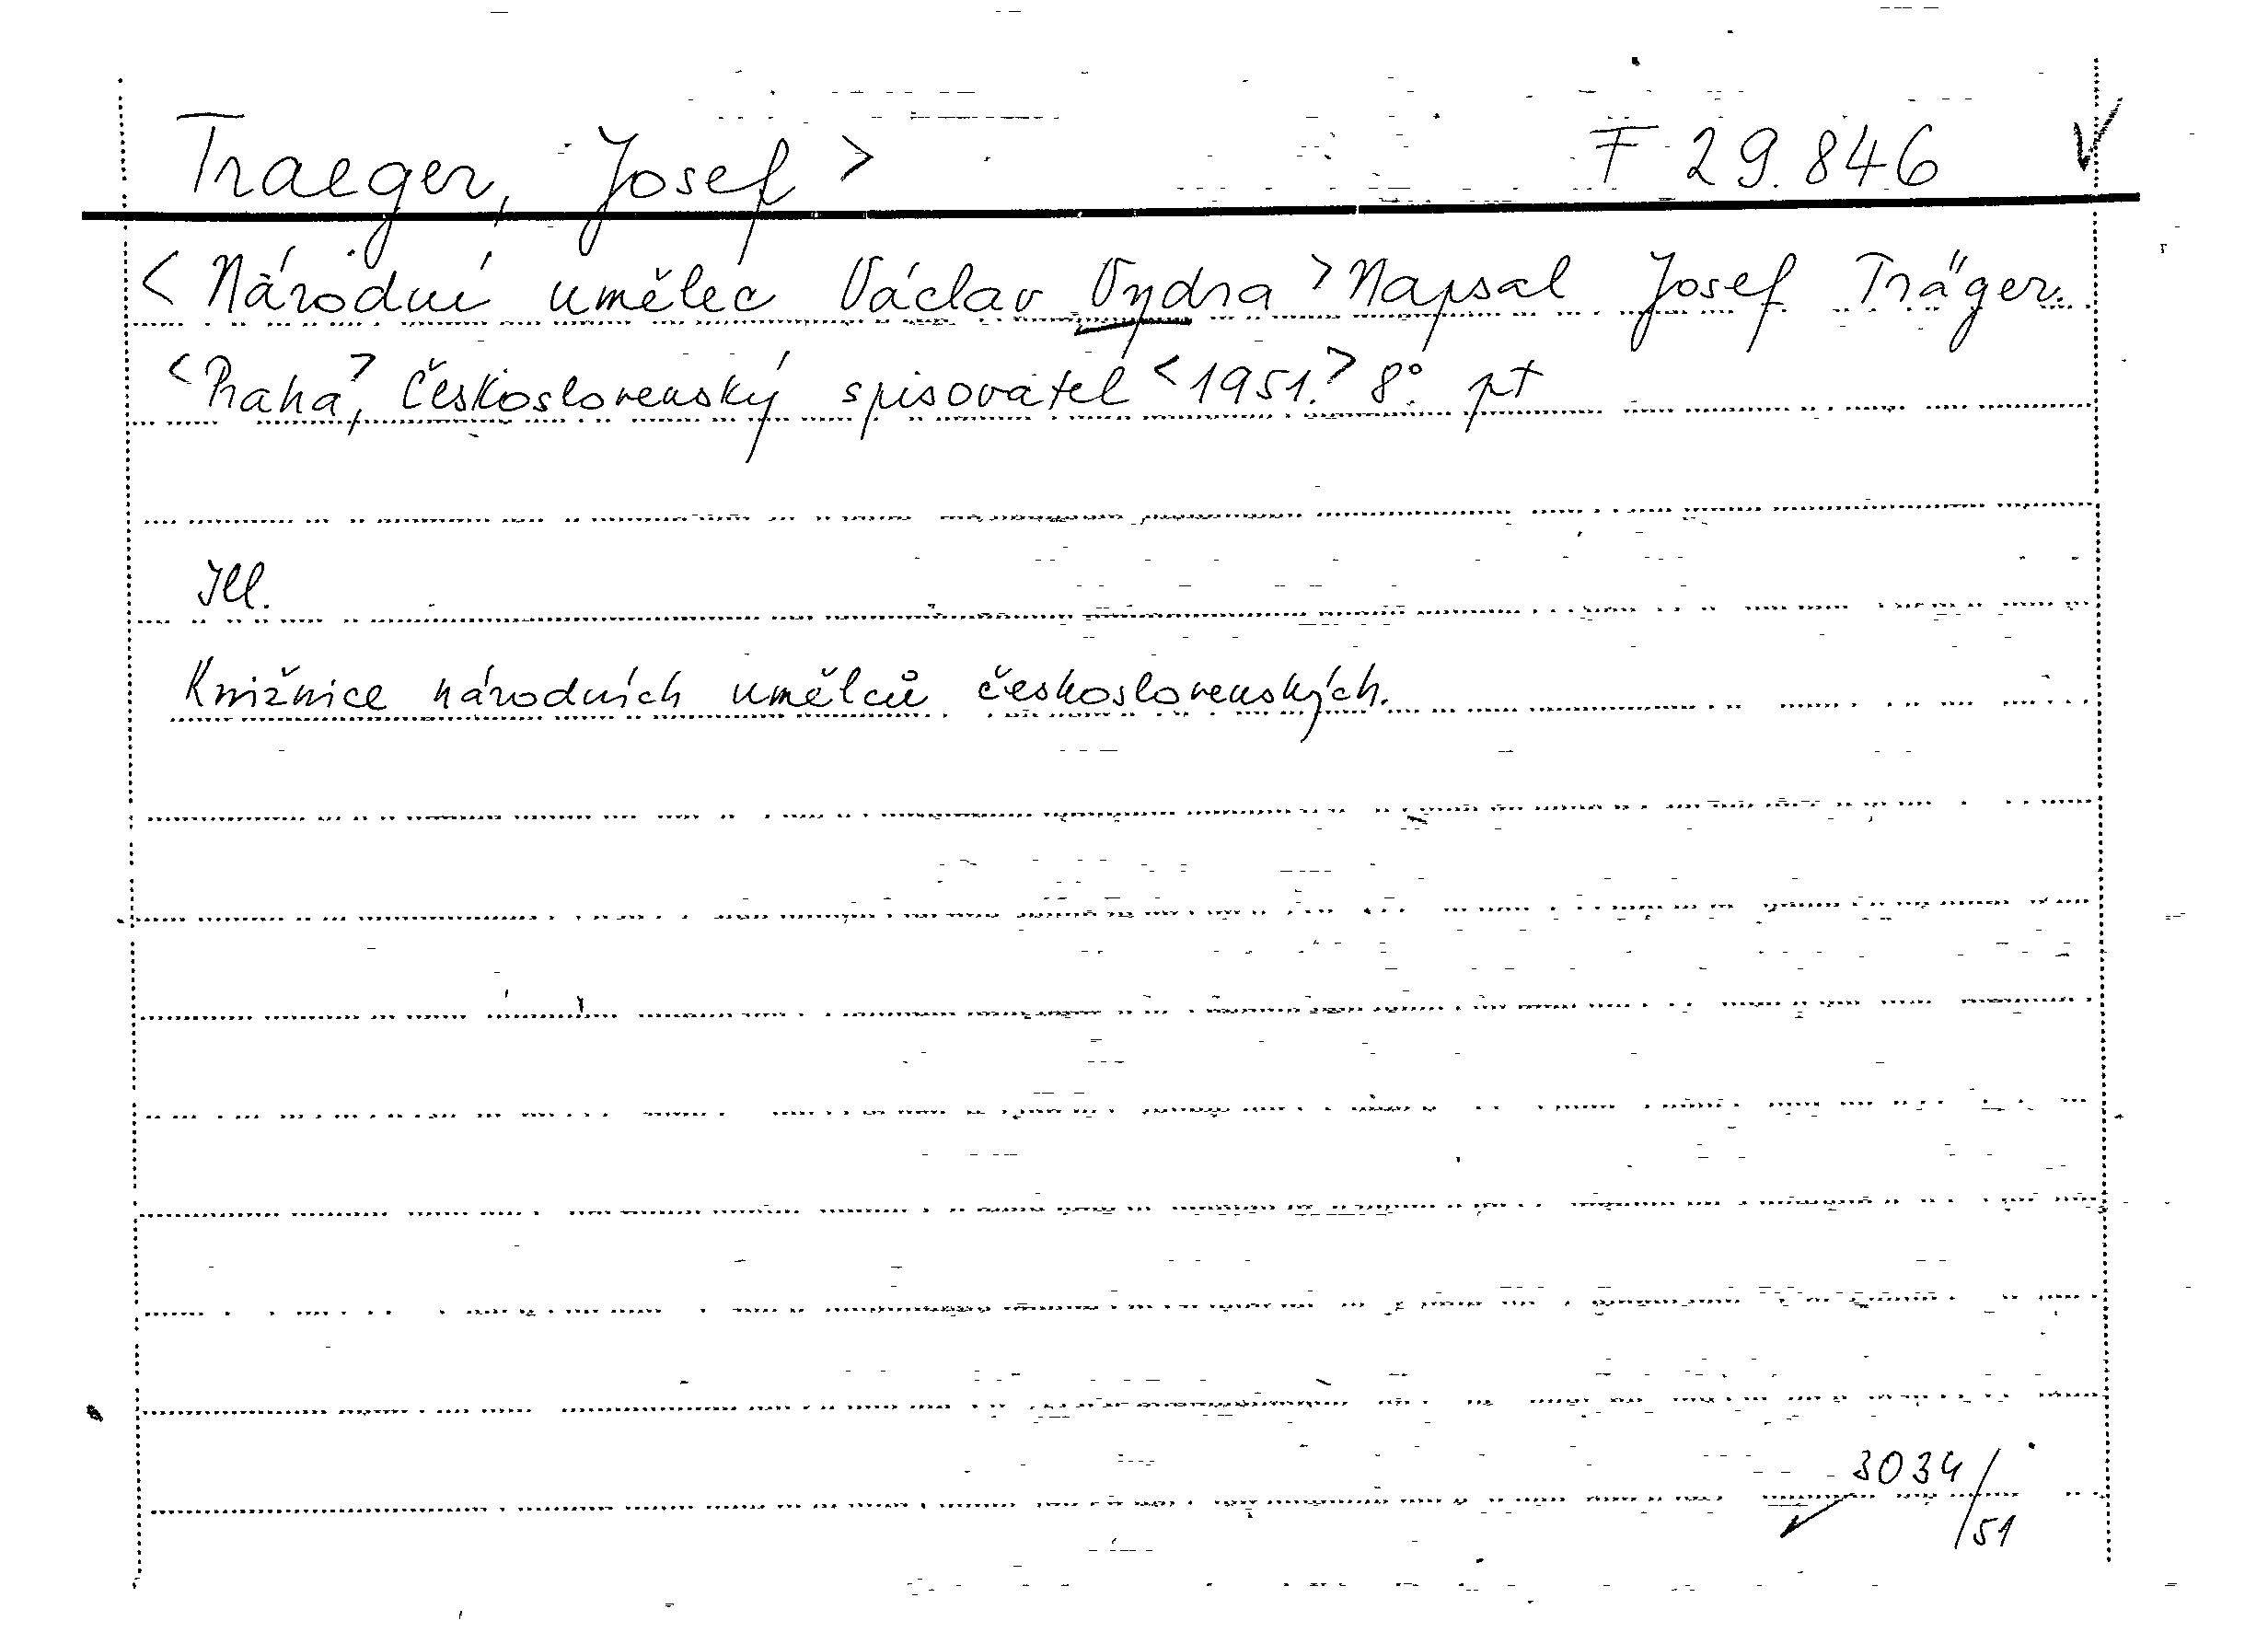 Traeger, Josef > F 29.846
< Národní umělec Václav Vydra > Napsal Josef Träger.
<Praha,> Československý spisovatel <1951.> 8°. pt
Ill.
Knižnice národních umělců československých.
3034/51